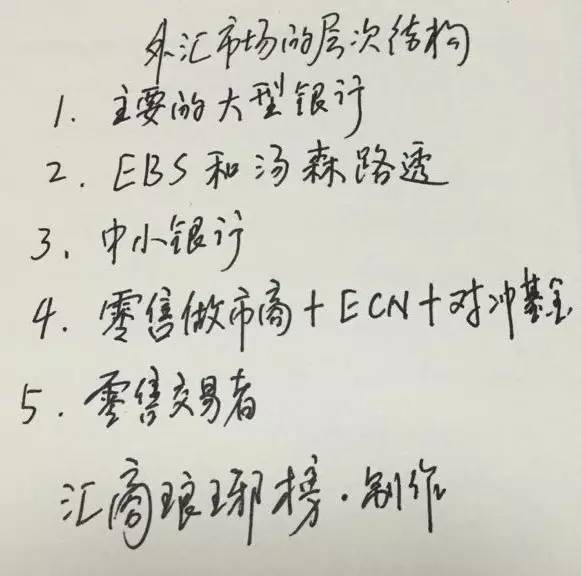 外汇市场的层次结构
1. 主要的大型银行
2. EBS和汤森路透
3. 中小银行
4. 零售做市商+ECN+对冲基金
5. 零售交易者
汇商琅琊榜·制作